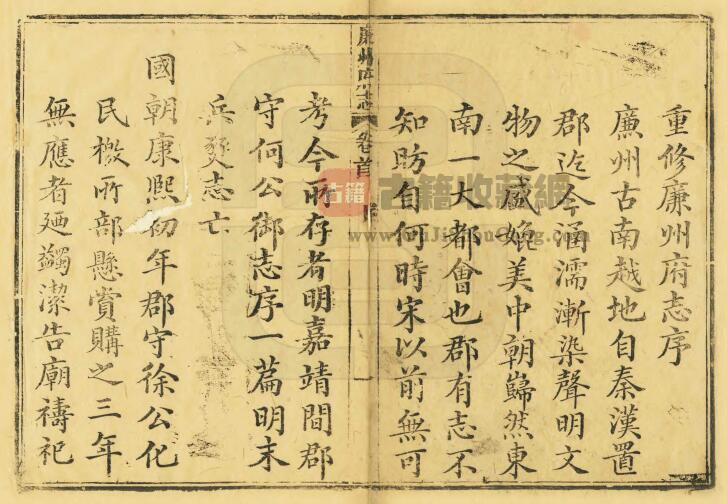 重修廉州府志序
廉州古南越地自秦漢置
郡迄今涵濡漸染聲明文
物之盛媲美中朝巋然東
南一大都會也郡有志不
知昉自何時宋以前無可
廉州府志 卷首 序 一
考今所存者明嘉靖間郡
守何公御志序一篇明末
兵燹志亡
國朝康熙初年郡守徐公化
民檄所部懸賞購之三年
無應者廼蠲潔告廟禱祀
古籍
古籍收藏網
www.GuJiShouCang.com